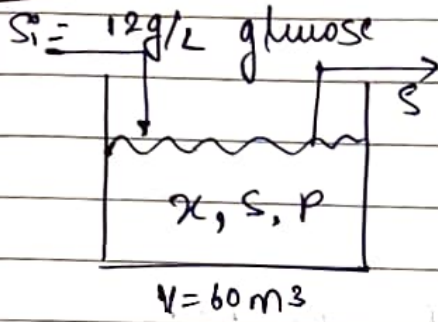 Si = 12g/L glucose
S
x, S, P
V = 60 m3